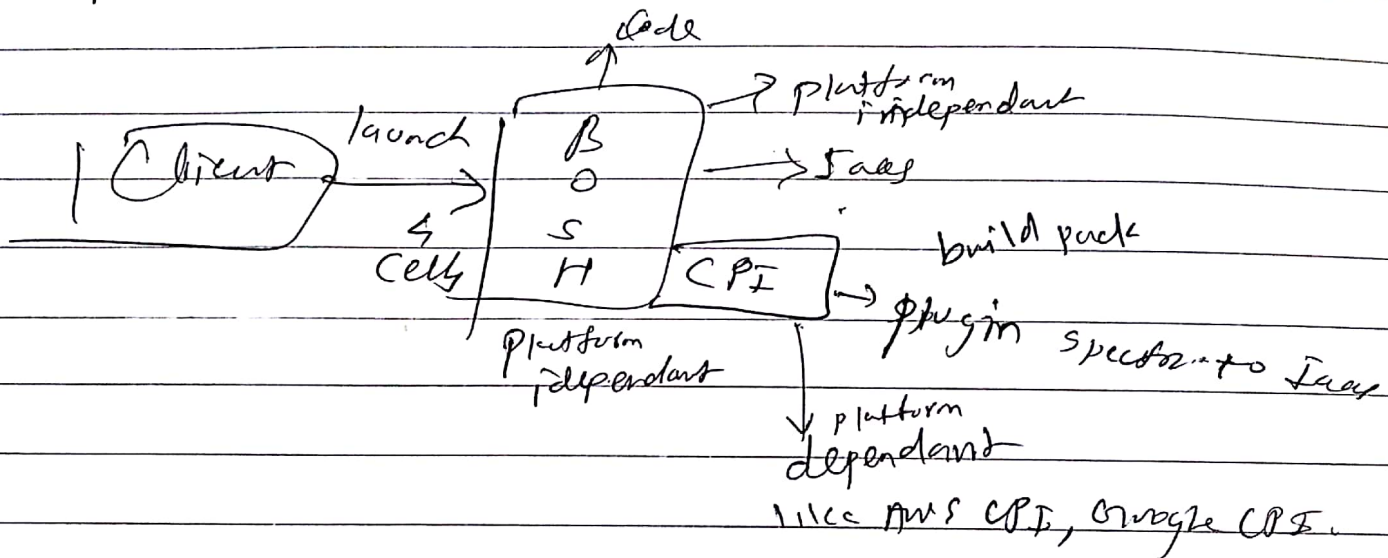 Code
platform
independant
launch
Client
B
O
S
H
Iaas
4
Cells
CPI
build pack
plugin specific to Iaas
Platform
idependant
platform
dependant
like AWS CPI, Google CPI.